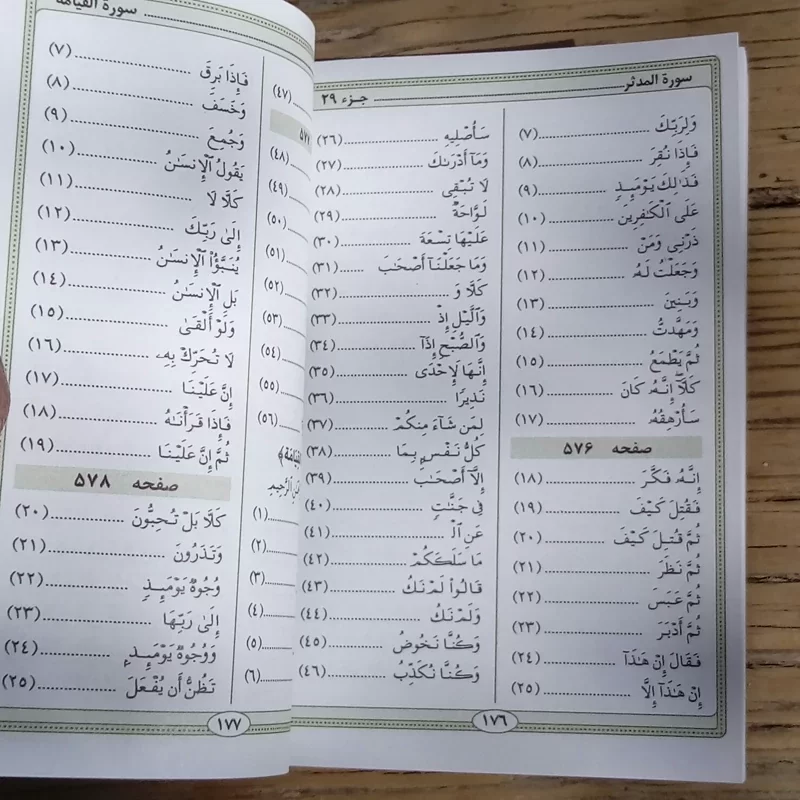 سورة المدثر
جزء ٢٩
وَلِرَبِّكَ ........ (٧)
فَإِذَا نُقِرَ ........ (٨)
فَذَٰلِكَ يَوْمَئِذٍ ........ (٩)
عَلَى ٱلْكَٰفِرِينَ ........ (١٠)
ذَرْنِى وَمَنْ ........ (١١)
وَجَعَلْتُ لَهُۥ ........ (١٢)
وَبَنِينَ ........ (١٣)
وَمَهَّدتُّ ........ (١٤)
ثُمَّ يَطْمَعُ ........ (١٥)
كَلَّآ إِنَّهُۥ كَانَ ........ (١٦)
سَأُرْهِقُهُۥ ........ (١٧)
صفحه ۵۷۶
إِنَّهُۥ فَكَّرَ ........ (١٨)
فَقُتِلَ كَيْفَ ........ (١٩)
ثُمَّ قُتِلَ كَيْفَ ........ (٢٠)
ثُمَّ نَظَرَ ........ (٢١)
ثُمَّ عَبَسَ ........ (٢٢)
ثُمَّ أَدْبَرَ ........ (٢٣)
فَقَالَ إِنْ هَٰذَآ ........ (٢٤)
إِنْ هَٰذَآ إِلَّا ........ (٢٥)
سَأُصْلِيهِ ........ (٢٦)
وَمَآ أَدْرَىٰكَ ........ (٢٧)
لَا تُبْقِى ........ (٢٨)
لَوَّاحَةٌ ........ (٢٩)
عَلَيْهَا تِسْعَةَ ........ (٣٠)
وَمَا جَعَلْنَآ أَصْحَٰبَ ........ (٣١)
كَلَّا وَ ........ (٣٢)
وَٱلَّيْلِ إِذْ ........ (٣٣)
وَٱلصُّبْحِ إِذَآ ........ (٣٤)
إِنَّهَا لَإِحْدَى ........ (٣٥)
نَذِيرًا ........ (٣٦)
لِمَن شَآءَ مِنكُمْ ........ (٣٧)
كُلُّ نَفْسٍۭ بِمَا ........ (٣٨)
إِلَّآ أَصْحَٰبَ ........ (٣٩)
فِى جَنَّٰتٍ ........ (٤٠)
عَنِ ٱلْ ........ (٤١)
مَا سَلَكَكُمْ ........ (٤٢)
قَالُوا۟ لَمْ نَكُ ........ (٤٣)
وَلَمْ نَكُ ........ (٤٤)
وَكُنَّا نَخُوضُ ........ (٤٥)
وَكُنَّا نُكَذِّبُ ........ (٤٦)
١٧٦
سورة القيامة
(٤٧)
(٤٨)
(٤٩)
(٥٠)
(٥١)
(٥٢)
(٥٣)
(٥٤)
(٥٥)
(٥٦)
(١)
(٢)
(٣)
(٤)
(٥)
(٦)
فَإِذَا بَرِقَ ........ (٧)
وَخَسَفَ ........ (٨)
وَجُمِعَ ........ (٩)
يَقُولُ ٱلْإِنسَٰنُ ........ (١٠)
كَلَّا لَا ........ (١١)
إِلَىٰ رَبِّكَ ........ (١٢)
يُنَبَّؤُا۟ ٱلْإِنسَٰنُ ........ (١٣)
بَلِ ٱلْإِنسَٰنُ ........ (١٤)
وَلَوْ أَلْقَىٰ ........ (١٥)
لَا تُحَرِّكْ بِهِۦ ........ (١٦)
إِنَّ عَلَيْنَا ........ (١٧)
فَإِذَا قَرَأْنَٰهُ ........ (١٨)
ثُمَّ إِنَّ عَلَيْنَا ........ (١٩)
صفحه ۵۷۸
كَلَّا بَلْ تُحِبُّونَ ........ (٢٠)
وَتَذَرُونَ ........ (٢١)
وُجُوهٌ يَوْمَئِذٍ ........ (٢٢)
إِلَىٰ رَبِّهَا ........ (٢٣)
وَوُجُوهٌ يَوْمَئِذٍۭ ........ (٢٤)
تَظُنُّ أَن يُفْعَلَ ........ (٢٥)
١٧٧